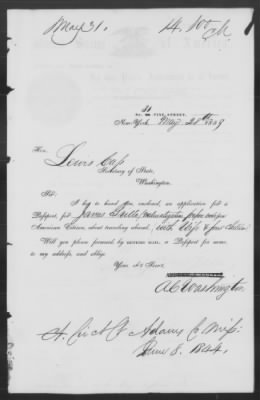 May 31.
14. 100 ck
21
No. PINE STREET,
New-York May 28th 1859
Hon.
Lewis Cass
Secretary of State,
Washington.
SIR:
I beg to hand you, enclosed, an application for a
Passport, for James naturalization paper
American Citizen, about traveling abroad, with Wife & four children
Will you please forward, by RETURN MAIL, a Passport for same,
to my address, and oblige
Yours, &c. &c.
A C Washington
A. Circt Ct Adams Co Miss:
June 8. 1844.